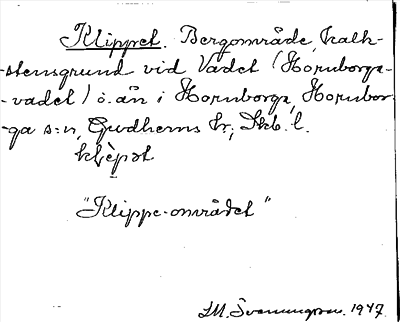 Klippet. Bergområde, kalk-
-stensgrund vid Vadet (Hornborga-
-vadet) ö. ån i Hornborga, Hornbor-
ga s:n, Gudhems hr, Skb. l.
"Klippe-området"
1947.